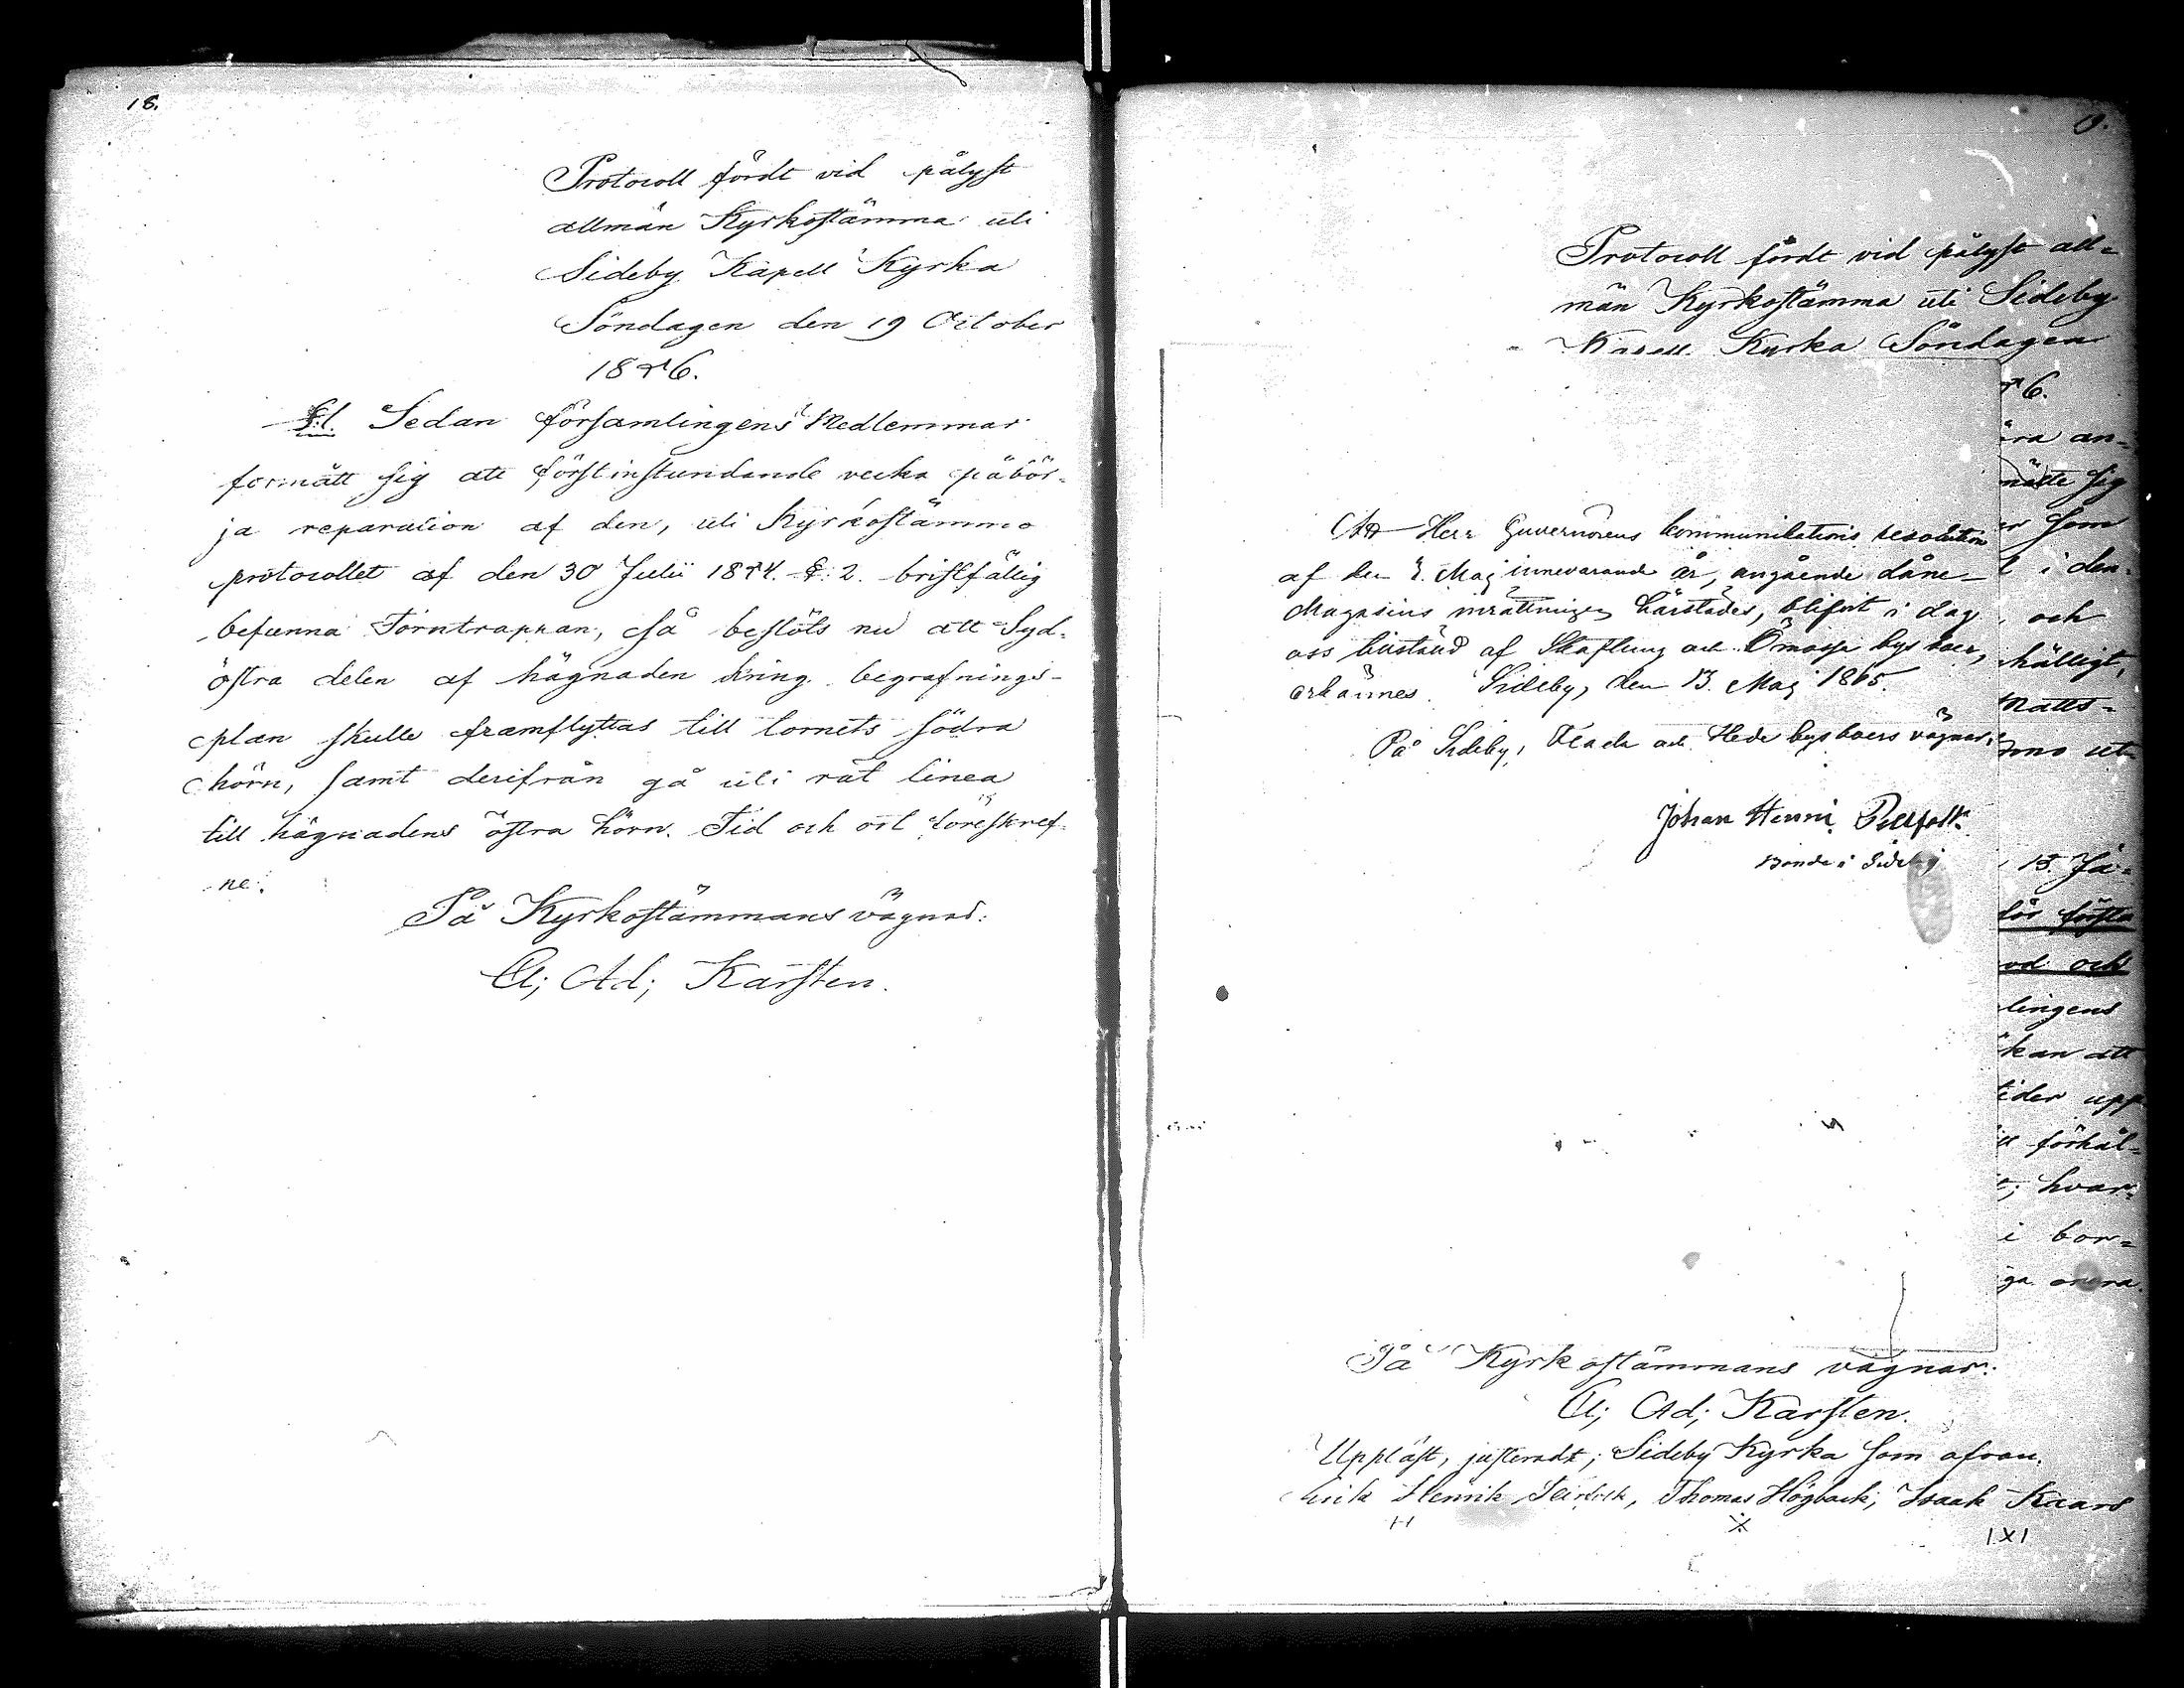 18.
Protocoll fördt vid pålyst
allmän Kyrkostämma uti
Sideby Kapell Kyrka
Söndagen den 19 October
1846.
§.1. Sedan församlingens Medlemmar
förmått sig att förstinstundande vecka påbör-
ja reparation af den, uti Kyrkostämmo
protocollet af den 30 Julii 1844. §. 2. bristfällig
befunna Torntrappan, så beslöts nu att Syd-
östra delen af hägnaden kring begrafnings-
plan skulle framflyttas till tornets södra
hörn, samt derifrån gå uti rät linea
till hägnadens östra hörn. Tid och ort föreskref-
ne.
På Kyrkostämmans vägnar:
Ad; Karsten.
19.
Protocoll fördt vid pålyst all-
män Kyrkostämma uti Sideby
Kapell Kyrka Söndagen
6.
Att Herr Guvernörens kommunikations resolution
af den Maj innevarande år, angående låne-
Magasins inrättningen härstädes, blifvit i dag
oss tillstäld af Skaftung och Ömossa bys boer,
erkännes. Sideby, den 13. Maj 1865.
På Sideby, Flada och Hede bysboers vägnar:
Johan Henric
Bonde i Sideby
ra an-
nätte sig
r som
i den
och
hälligt,
Matts-
mo ut-
15. Ja-
för första
od och
lingens
kan att
tider upp
förhål-
; hvar-
i bor-
ga
På Kyrkostämmans vägnar:
Ad; Karsten.
Uppläst, justeradt; Sideby Kyrka som ofvan.
Erik Henrik , Thomas Högback, Isaak Kaars
IXI